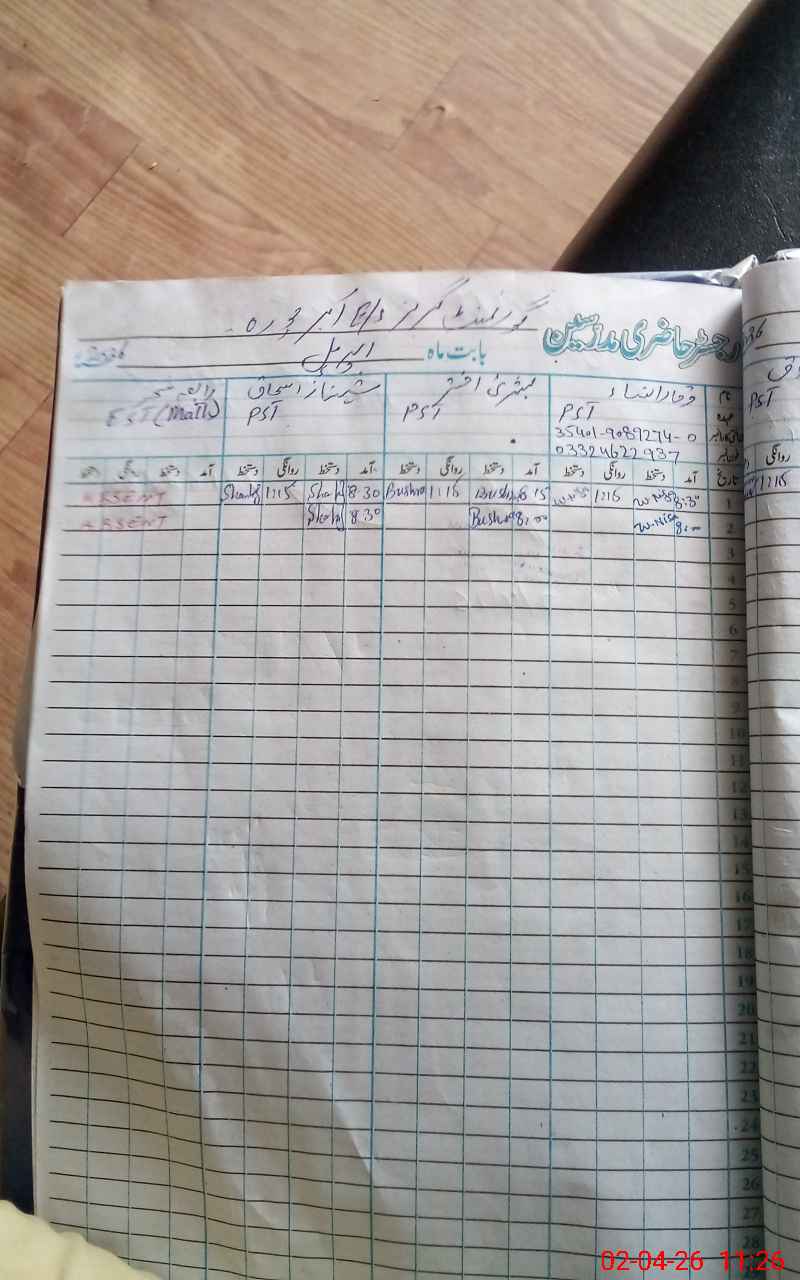 رجسٹر حاضری مدرسین گورنمنٹ گرلز E/S اکبر
بابت ماہ اپریل
نام وقار النساء بشریٰ اختر شہناز اسحاق
عہدہ PST PST PST EST (Math)
35401-9089274-0
03324622937
تاریخ آمد دستخط روانگی دستخط آمد دستخط روانگی دستخط آمد دستخط روانگی دستخط آمد دستخط روانگی دستخط
1 8:30 W-Nisa 1:15 W-Nisa 8:15 Bushra 1:15 Bushra 8:30 1:15 ABSENT
2 8:00 W-Nisa 8:00 Bushra 8:30 ABSENT
3
4
5
6
7
8
9
10
11
12
13
14
15
16
17
18
19
20
21
22
23
24
25
26
27
28
روانگی
1:15
02-04-26 11:26